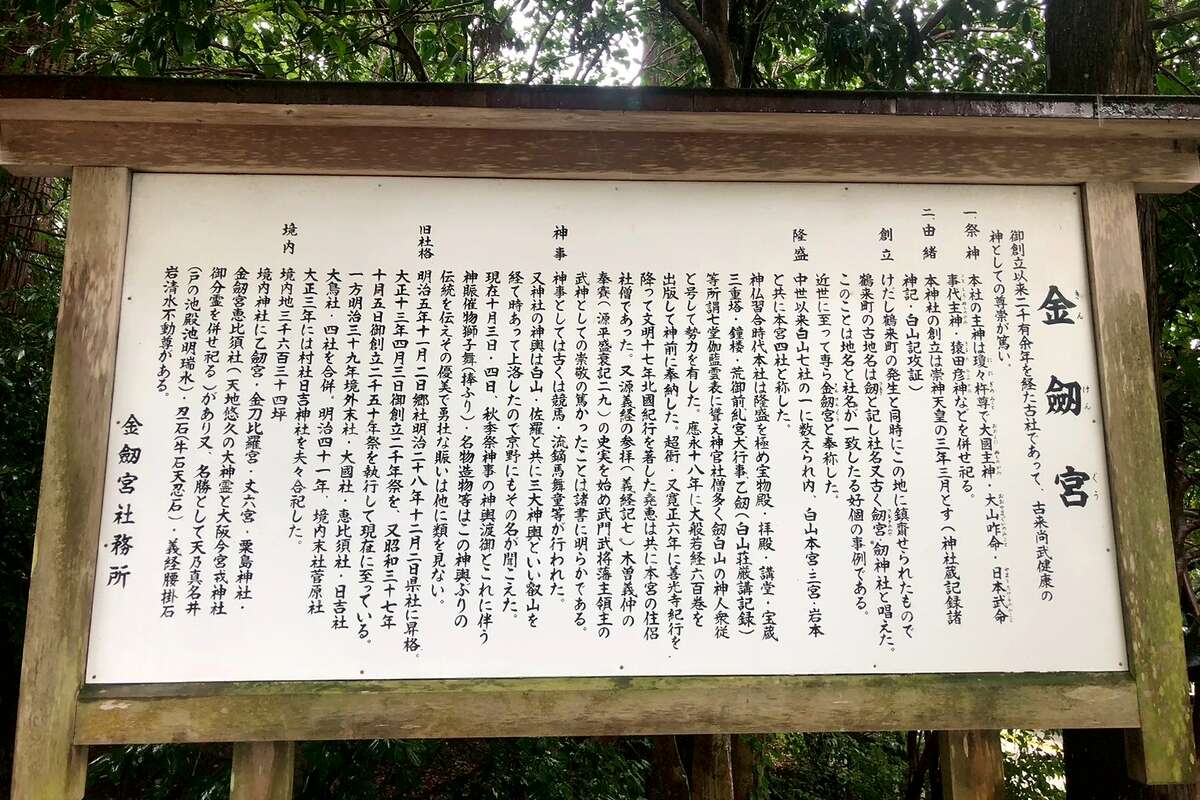 金劔宮
きんけんぐう
御創立以来二千有余年を経た古社であって、古来尚武健康の
神としての尊崇が篤い。
一、祭神 本社の主神は瓊々杵尊で大國主神・大山咋命・日本武命
事代主神・猿田彦神などを併せ祀る。
二、由緒 本神社の創立は崇神天皇の三年三月とす(神社蔵記録諸
神記・白山記攻証)
創立 けだし鶴来町の発生と同時にこの地に鎮齋せられたもので
鶴来町の古地名は劔と記し社名又古く劔宮・劔神社と唱えた。
このことは地名と社名が一致したる好個の事例である。
近世に至って専ら金劔宮と奉称した。
隆盛 中世以来白山七社の一に数えられ内、白山本宮・三宮・岩本
と共に本宮四社と称した。
神仏習合時代本社は隆盛を極め宝物殿・拝殿・講堂・宝蔵
三重塔・鐘楼・荒御前糺宮大行事乙劔(白山荘厳講記録)
等所謂七堂伽藍雲表に聳え神官社僧多く劔白山の神人衆従
と号して勢力を有した。應永十八年に大般若経六百巻を
出版して神前に奉納した。超衝・又寛正六年に善光寺紀行を・
降って文明十七年北國紀行を著した堯恵は共に本宮の住侶
社僧であった。又源義経の参拝(義経記七)木曽義仲の
奉賽(源平盛衰記二九)の史実を始め武門武将藩主領主の
武神としての崇敬の篤かったことは諸書に明らかである。
神事 神事としては古くは競馬・流鏑馬舞童等が行われた。
又神社の神輿は白山・佐羅と共に三大神輿といい叡山を
経て時あって上洛したので京野にもその名が聞こえた。
現在十月三日・四日、秋季祭神事の神輿渡御とこれに伴う
神賑催物獅子舞(棒ふり)・名物造物等はこの神輿ぶりの
伝統を伝えその優美で勇壮な賑いは他に類を見ない。
旧社格 明治五年十一月二日郷社明治二十八年十二月二日県社に昇格。
大正十三年四月三日御創立二千年祭を、又昭和三十七年
十月五日御創立二千五十年祭を執行して現在に至っている。
一方明治三十九年境外末社・大國社・恵比須社・日吉社
大鳥社・四社を合併、明治四十一年、境内末社菅原社
大正三年には村社日吉神社を夫々合祀した。
境内 境内地三千六百三十四坪
境内神社に乙劔宮・金刀比羅宮・丈六宮・粟島神社・
金劔宮恵比須社(天地悠久の大神霊と大阪今宮戎神社
御分霊を併せ祀る)があり又、名勝として天乃真名井
(一戸の池殿池明瑞水)・忍石(牛石天忍石)・義経腰掛石
岩清水不動尊がある。
金劔宮社務所